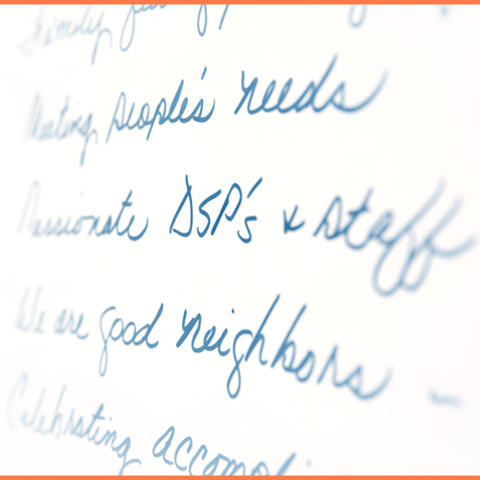 Family
Meeting people's needs
Passionate DSP's & staff
We are good neighbors -
Celebrating accompl